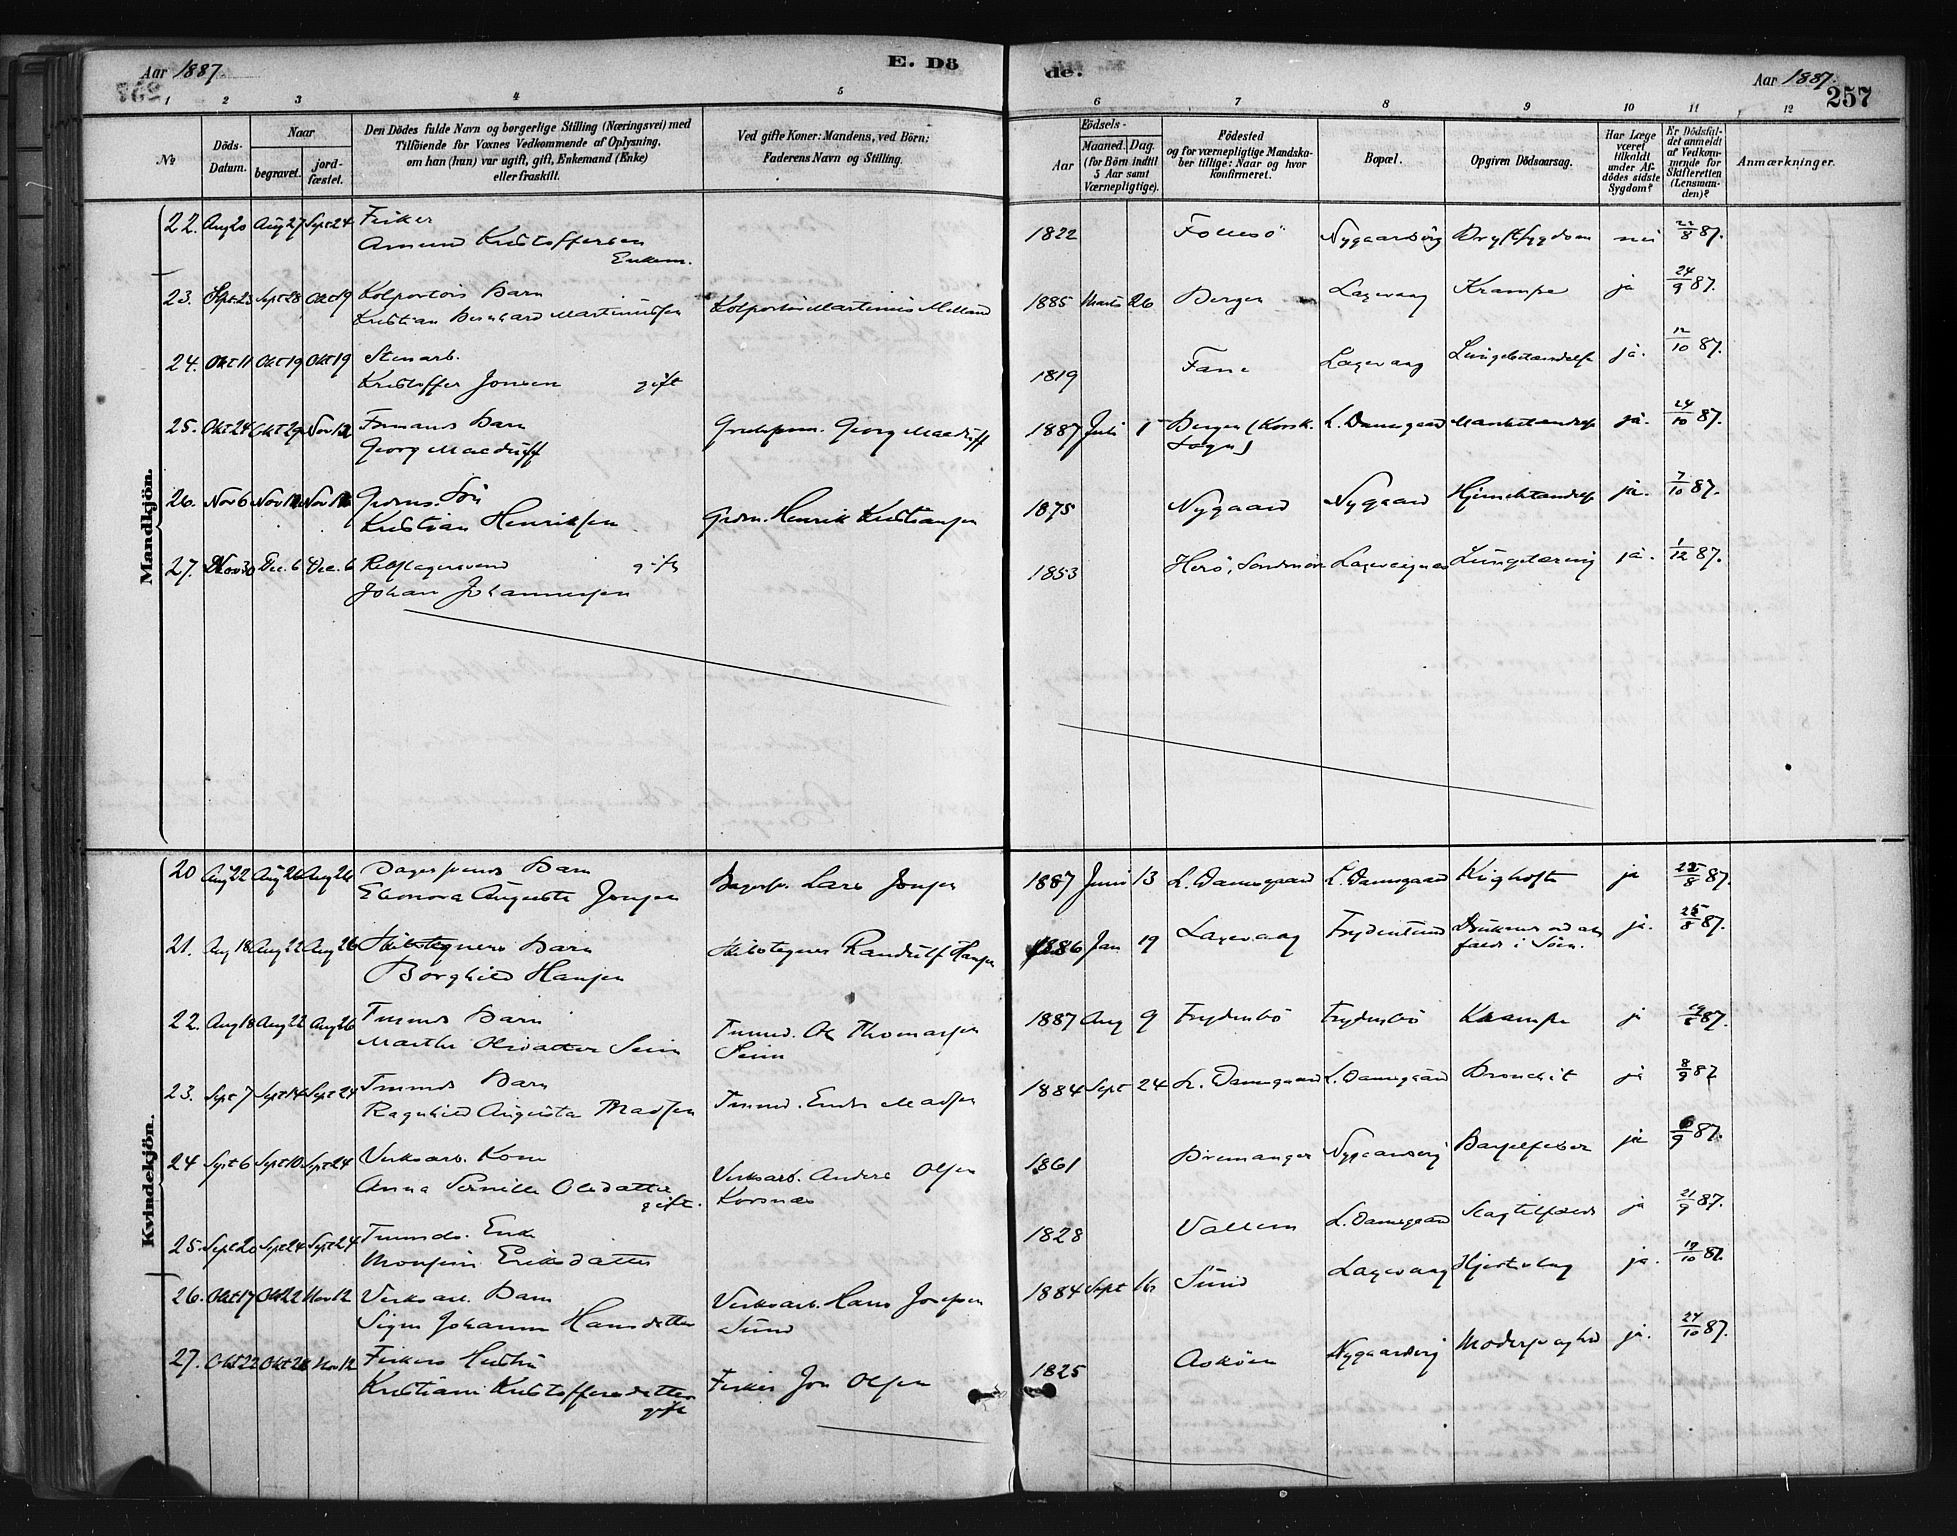 Aar 1887.
E. Dö
de.
Aar 1887.
257
1 2 3 4 5 6 7 8 9 10 11 12
No
Döds-Datum.
Naar
begravet.
jord-fæstet.
Den Dödes fulde Navn og borgerlige Stilling (Næringsvei) med
Tilföiende for Voxnes Vedkommende af Oplysning,
om han (hun) var ugift, gift, Enkemand (Enke)
eller fraskilt.
Ved gifte Koner: Mandens, ved Börn:
Faderens Navn og Stilling.
Födsels-
Aar
Maaned. Dag.
(for Börn indtil
5 Aar samt
Værnepligtige).
Födested
og for værnepligtige Mandska-
ber tillige: Naar og hvor
konfirmeret.
Bopæl.
Opgiven Dödsaarsag.
Har Læge
været
tilkaldt
under Af-
dödes sidste
Sygdom?
Er Dödsfal-
det anmeldt
af Vedkom-
mende for
Skifteretten
(Lensman-
den)?
Anmærkninger.
Mandkjön.
22. Aug 20 Aug 27 Sept 24 Fisker
Amund Kristoffersen
Enkem.
1822 Follesö Nygaardsvig Brystsygdom nei 22/8 87.
23. Sept 23 Sept 28 Okt 19 Kolportörs Barn
Kristian Bernhard Martinussen Kolportör Martinus Melland
1885 Marts 26 Bergen Laxevaag Krampe ja 24/9 87.
24. Okt 11 Okt 19 Okt 19 Stenarb.
Kristoffer Jonsen gift
1819 Fane Laxevaag Lungebetændelse ja. 12/10 87.
25. Okt 24 Okt 29 Nov 12 Formands Barn
Georg Macduff Georg Macduff
1887 Juli 1 Bergen (Korsk.
Sogn) L. Damsgaard ja. 24/10 87.
26. Nov 6 Nov 12 Nov 12 Grdms. Sön
Kristian Henriksen Grdm. Henrik Kristiansen
1875 Nygaard Nygaard Hjernebetændelse ja. 7/10 87.
27. Nov 30 Dec. 6 Dec. 6 Rebslagersvend gift
Johan Johannessen
1853 Herö, Söndmör Lungetæring ja. 1/12 87.
Kvindekjön.
20 Aug 22 Aug 26 Aug 26 Bagersvends Barn
Eleonora Auguste Jonsen Bagersv. Lars Jonsen
1887 Juni 13 L. Damsgaard L. Damsgaard Kighoste ja 23/8 87.
21. Aug 18 Aug 22 Aug 26 Skibstegners Barn
Borghild Hansen Skibstegner Randulf Hansen
1886 Jan 19 Laxevaag Frydenlund Druknet ved at
falde i Söen. ja. 22/8 87.
22. Aug 18 Aug 22 Aug 26 Tmmds Barn
Marthe Olsdatter Seim Tmmd. Ole Thomassen
Seim
1887 Aug 9 Frydenbö Frydenbö Krampe ja 19/8 87.
23. Sept 7 Sept 14 Sept 24 Tmmds Barn
Ragnhild Augusta Madsen Tmmd. Endre Madsen
1884 Sept 24 L. Damsgaard L. Damsgaard Bronchit ja 8/9 87.
24 Sept 6 Sept 10 Sept 24 Verksarb. Kone
Anna Pernille Olsdatter
gift. Verksarb. Anders Olsen
Korsnæs
1861 Bremanger Nygaardsvig Barselfeber ja 6/9 87.
25. Sept 20 Sept 24 Sept 24 Tmmds. Enke
Monsine Eriksdatter
1828 L. Damsgaard Slagtilfælde ja 21/9 87.
26. Okt 17 Okt 22 Nov 12 Verksarb. Barn
Signe Johanne Hansdatter Verksarb. Hans Josefsen
Sund
1884 Sept 16 Sund Laxevaag ja. 17/10 87.
27. Okt 22 Okt 26 Nov 12 Fiskers Hustru
Kristiane Kristoffersdatter
gift Fisker Jon Olsen
1825 Asköen Nygaardsvig ja. 24/10 87.